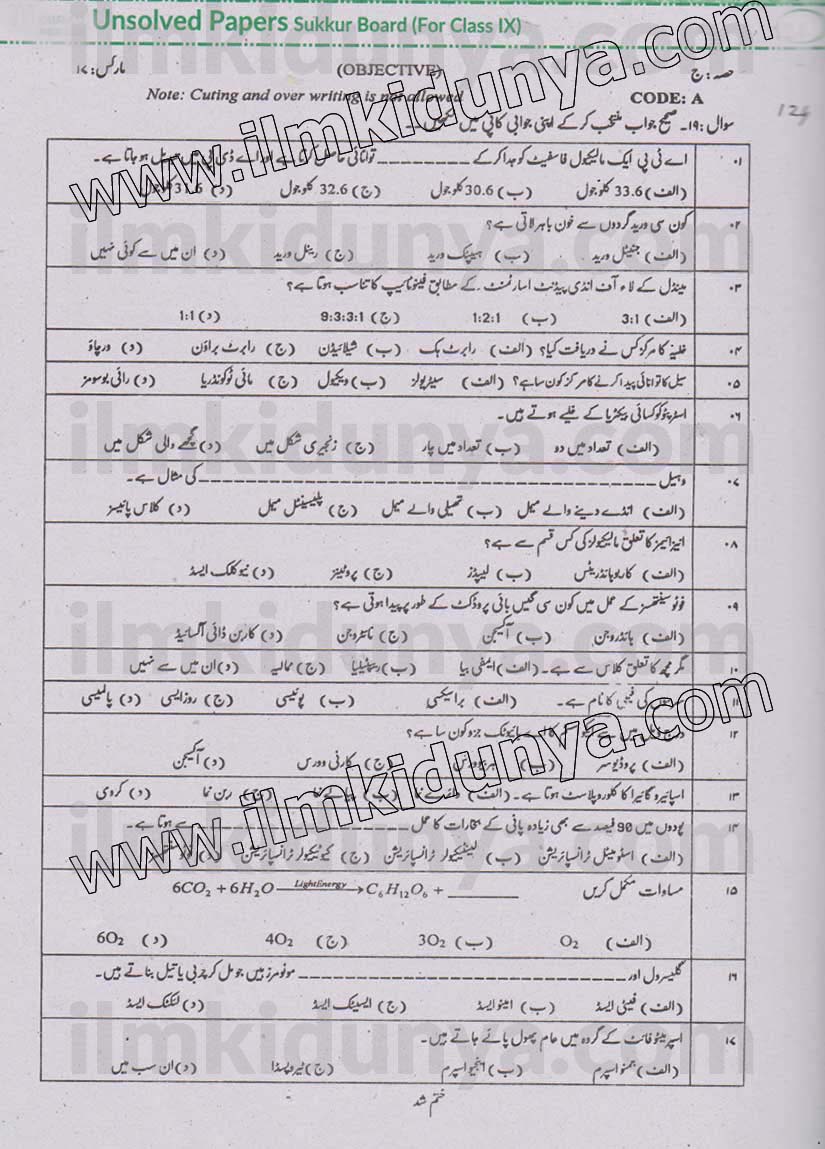 Unsolved Papers Sukkur Board (For Class IX)
حصہ: ج (OBJECTIVE) مارکس: ۱۷
Note: Cuting and over writing is not allowed CODE: A
124
سوال: ۱۹۔ صحیح جواب منتخب کرکے اپنی جوابی کاپی میں
۰۱ اے ٹی پی ایک مالیکیول فاسفیٹ کو جدا کرکے ________ توانائی حاصل کرتا ہے اور اے ڈی پی میں تبدیل ہو جاتا ہے۔
(الف) 33.6 کلوجول (ب) 30.6 کلوجول (ج) 32.6 کلوجول (د) 31.6 کلوجول
۰۲ کون سی ورید گردوں سے خون باہر لاتی ہے؟
(الف) جنیٹل ورید (ب) ہیپٹک ورید (ج) رینل ورید (د) ان میں سے کوئی نہیں
۰۳ مینڈل کے لاء آف انڈی پینڈنٹ اسارٹمنٹ کے مطابق فینوٹائپ کا تناسب ہوتا ہے؟
(الف) 3:1 (ب) 1:2:1 (ج) 9:3:3:1 (د) 1:1
۰۴ خلیئے کا مرکز کس نے دریافت کیا؟ (الف) رابرٹ ہک (ب) شیلائیڈن (ج) رابرٹ براؤن (د) ورچاؤ
۰۵ سیل کا توانائی پیدا کرنے کا مرکز کون سا ہے؟ (الف) سیٹریولز (ب) ویکیول (ج) مائی ٹوکونڈریا (د) رائی بوسومز
۰۶ اسٹریٹوکوکسائی بیکٹریا کے خلیے ہوتے ہیں۔
(الف) تعداد میں دو (ب) تعداد میں چار (ج) زنجیری شکل میں (د) گچھے والی شکل میں
۰۷ وہیل ________ کی مثال ہے۔
(الف) انڈے دینے والے میمل (ب) تھیلی والے میمل (ج) پلیسینٹل میمل (د) کلاس پائیسز
۰۸ انیزائمز کا تعلق مالیکیولز کی کس قسم سے ہے؟
(الف) کاربوہائیڈریٹس (ب) لیپڈز (ج) پروٹینز (د) نیوکلک ایسڈ
۰۹ فوٹوسینتھسز کے عمل میں کون سی گیس بائی پروڈکٹ کے طور پر پیدا ہوتی ہے؟
(الف) ہائیڈروجن (ب) آکسیجن (ج) نائٹروجن (د) کاربن ڈائی آکسائیڈ
۱۰ مگر مچھ کا تعلق کلاس سے ہے۔ (الف) ایمفی بیا (ب) ریپٹیلیا (ج) ممالیہ (د) ان میں سے نہیں
۱۱ کی فیملی کا نام ہے۔ (الف) براسیکسی (ب) پوئیسی (ج) روزایسی (د) پالمیسی
۱۲ بائیوٹک جزو کون سا ہے؟
(الف) پروڈیوسر (ب) ہربی وورس (ج) کارنی وورس (د) آکسیجن
۱۳ اسپائیروگائیرا کا کلوروپلاسٹ ہوتا ہے۔ (الف) نما (ب) پیالے نما (ج) ربن نما (د) کروی
۱۴ پودوں میں 90 فیصد سے بھی زیادہ پانی کے بخارات کا عمل ________ سے ہوتا ہے۔
(الف) اسٹومیٹل ٹرانسپائریشن (ب) لینٹیکیولر ٹرانسپائریشن (ج) کیوٹیکیولر ٹرانسپائریشن (د)
۱۵ مساوات مکمل کریں 6CO₂ + 6H₂O —LightEnergy→ C₆H₁₂O₆ + ________
(الف) O₂ (ب) 3O₂ (ج) 4O₂ (د) 6O₂
۱۶ گلیسرول اور ________ مونومرز ہیں جو مل کر چربی یا تیل بناتے ہیں۔
(الف) فیٹی ایسڈ (ب) امینو ایسڈ (ج) ایسیٹک ایسڈ (د) لنکنگ ایسڈ
۱۷ اسپرمیٹوفائٹ کے گروہ میں عام پھول پائے جاتے ہیں۔
(الف) جمنواسپرم (ب) انجیواسپرم (ج) ٹیروپسڈا (د) ان سب میں
ختم شد
www.ilmkidunya.com
www.ilmkidunya.com
ilmkidunya.com
ilmkidunya.com
ilmkidunya.com
ilmkidunya.com